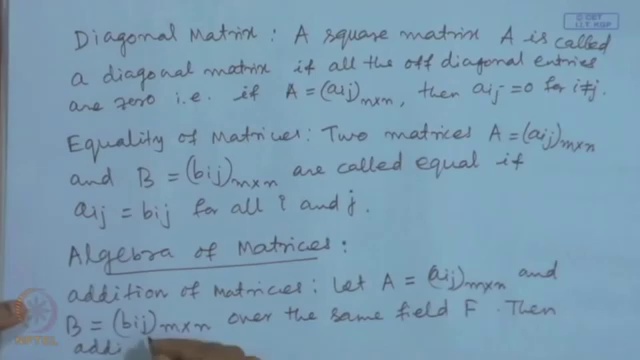 © CET
I.I.T. KGP
Diagonal Matrix : A square matrix A is called
a diagonal matrix if all the off diagonal entries
are zero i.e. if A = (aij)m×n, then aij = 0 for i≠j.
Equality of Matrices: Two matrices A = (aij)m×n
and B = (bij)m×n are called equal if
aij = bij for all i and j.
Algebra of Matrices:
addition of Matrices: Let A = (aij)m×n and
B = (bij)m×n over the same field F. Then
addi
NPTEL